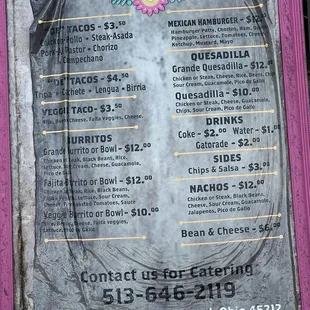 TACOS - $3.50
Pollo • Steak-Asada
Pastor • Chorizo
Campechano
TACOS - $4.50
Tripa • Cachete • Lengua • Birria
VEGGIE TACO- $3.50
Rice, Beans, Cheese, Fajita Veggies, Cheese,
BURRITOS
Grande Burrito or Bowl - $12.00
Chicken or Steak, Black Beans, Rice,
Lettuce, Sour Cream, Cheese, Guacamole,
Pico de Gallo
Fajita Burrito or Bowl - $12.00
Chicken or Steak, Rice, Black Beans,
Fajita Veggies, Lettuce, Sour Cream,
Cheese, Tomatoes, Sauce
Veggie Burrito or Bowl - $10.00
Rice, Beans, Cheese, Fajita veggies,
Lettuce, Pico de Gallo
MEXICAN HAMBURGER - $12.
Hamburger Patty, Chorizo, Ham,
Pineapple, Lettuce, Tomatoes,
Ketchup, Mustard, Mayo
QUESADILLA
Grande Quesadilla - $12.00
Chicken or Steak, Cheese, Rice, Beans,
Sour Cream, Guacamole, Pico de Gallo
Quesadilla - $10.00
Chicken or Steak, Cheese, Guacamole,
Sour Cream, Pico de Gallo
DRINKS
Coke - $2.00 Water - $1.00
Gatorade - $2.00
SIDES
Chips & Salsa - $3.
NACHOS - $12.00
Chicken or Steak, Black Beans,
Cheese, Sour Cream, Guacamole,
Jalapenos, Pico de Gallo
Bean & Cheese - $6.00
Contact us for Catering
513-646-2119
Ohio 45212